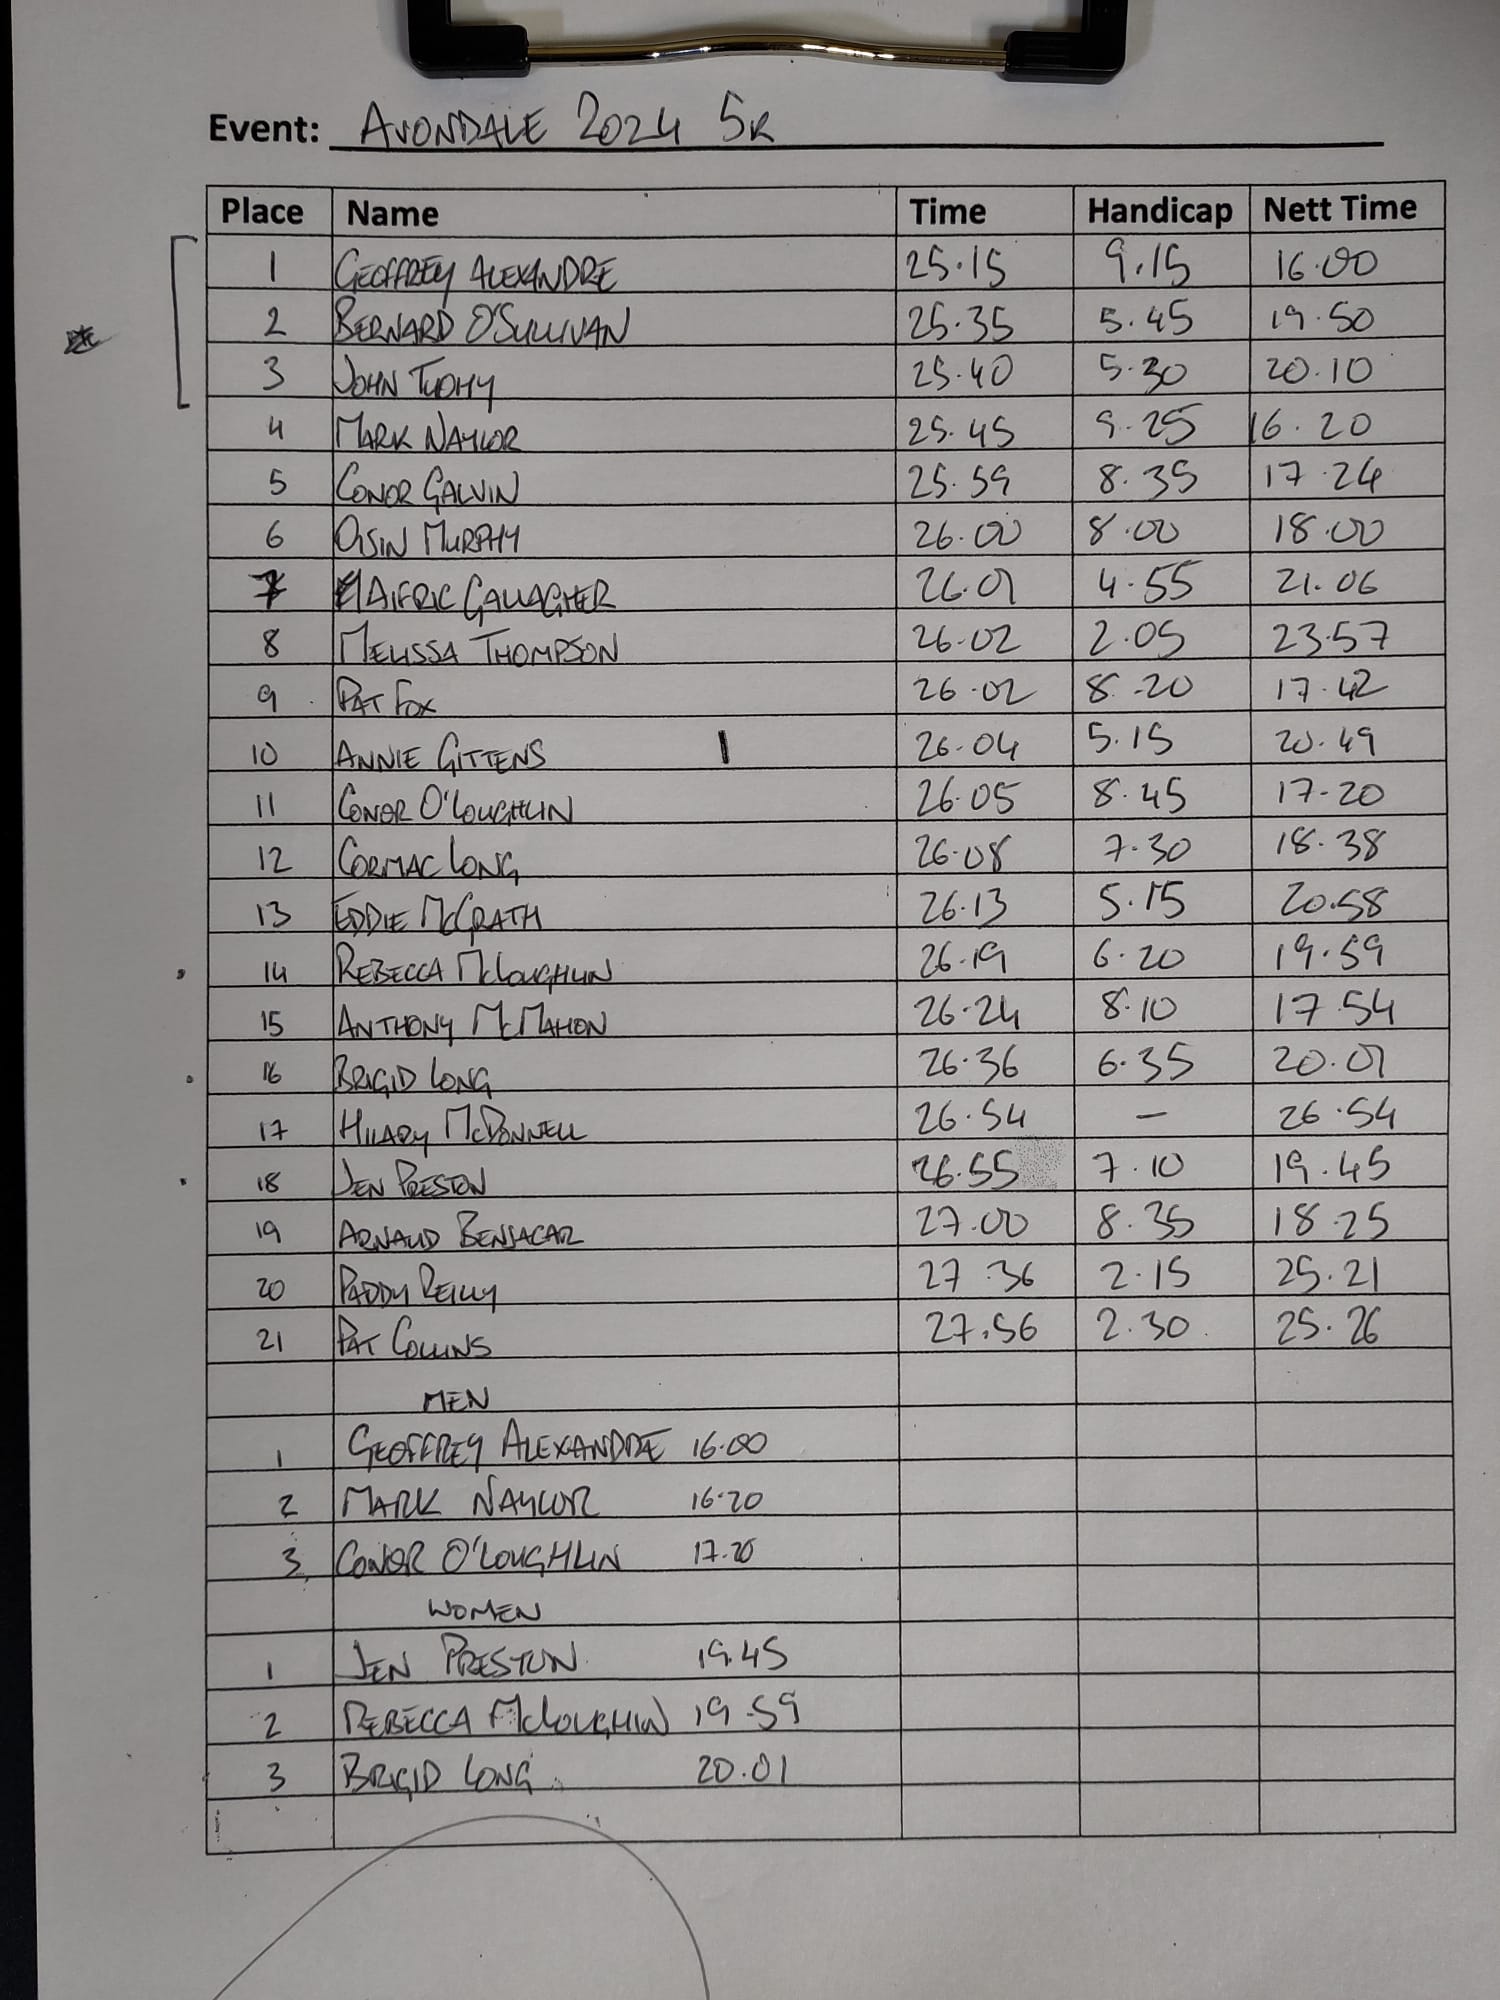 Event: AVONDALE 2024 5K
Place Name Time Handicap Nett Time
1 GEOFFREY ALEXANDRE 25.15 9.15 16.00
2 BERNARD O'SULLIVAN 25.35 5.45 19.50
3 JOHN TUOHY 25.40 5.30 20.10
4 MARK NAYLOR 25.45 9.25 16.20
5 CONOR GALVIN 25.59 8.35 17.24
6 OISIN MURPHY 26.00 8.00 18.00
7 AIFRIC GALLAGHER 26.01 4.55 21.06
8 MELISSA THOMPSON 26.02 2.05 23.57
9 PAT FOX 26.02 8.20 17.42
10 ANNIE GITTENS 26.04 5.15 20.49
11 CONOR O'LOUGHLIN 26.05 8.45 17.20
12 CORMAC LONG 26.08 7.30 18.38
13 EDDIE McGRATH 26.13 5.15 20.58
14 REBECCA McLOUGHLIN 26.19 6.20 19.59
15 ANTHONY McMAHON 26.24 8.10 17.54
16 BRIGID LONG 26.36 6.35 20.01
17 HILARY McDONNELL 26.54 – 26.54
18 JEN PRESTON 26.55 7.10 19.45
19 ARNAUD BENJACAR 27.00 8.35 18.25
20 PADDY REILLY 27.36 2.15 25.21
21 PAT COLLINS 27.56 2.30 25.26
MEN
1 GEOFFREY ALEXANDRE 16.00
2 MARK NAYLOR 16.20
3 CONOR O'LOUGHLIN 17.20
WOMEN
1 JEN PRESTON 19.45
2 REBECCA McLOUGHLIN 19.59
3 BRIGID LONG 20.01